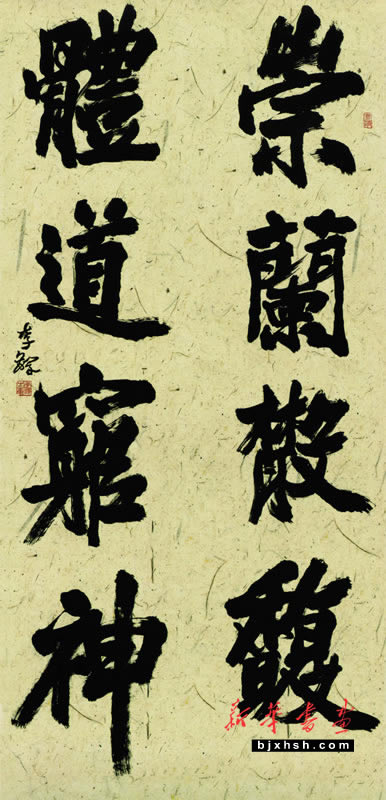 崇蘭散馥
體道窮神
李鐸
新华书画
bjxhsh.com